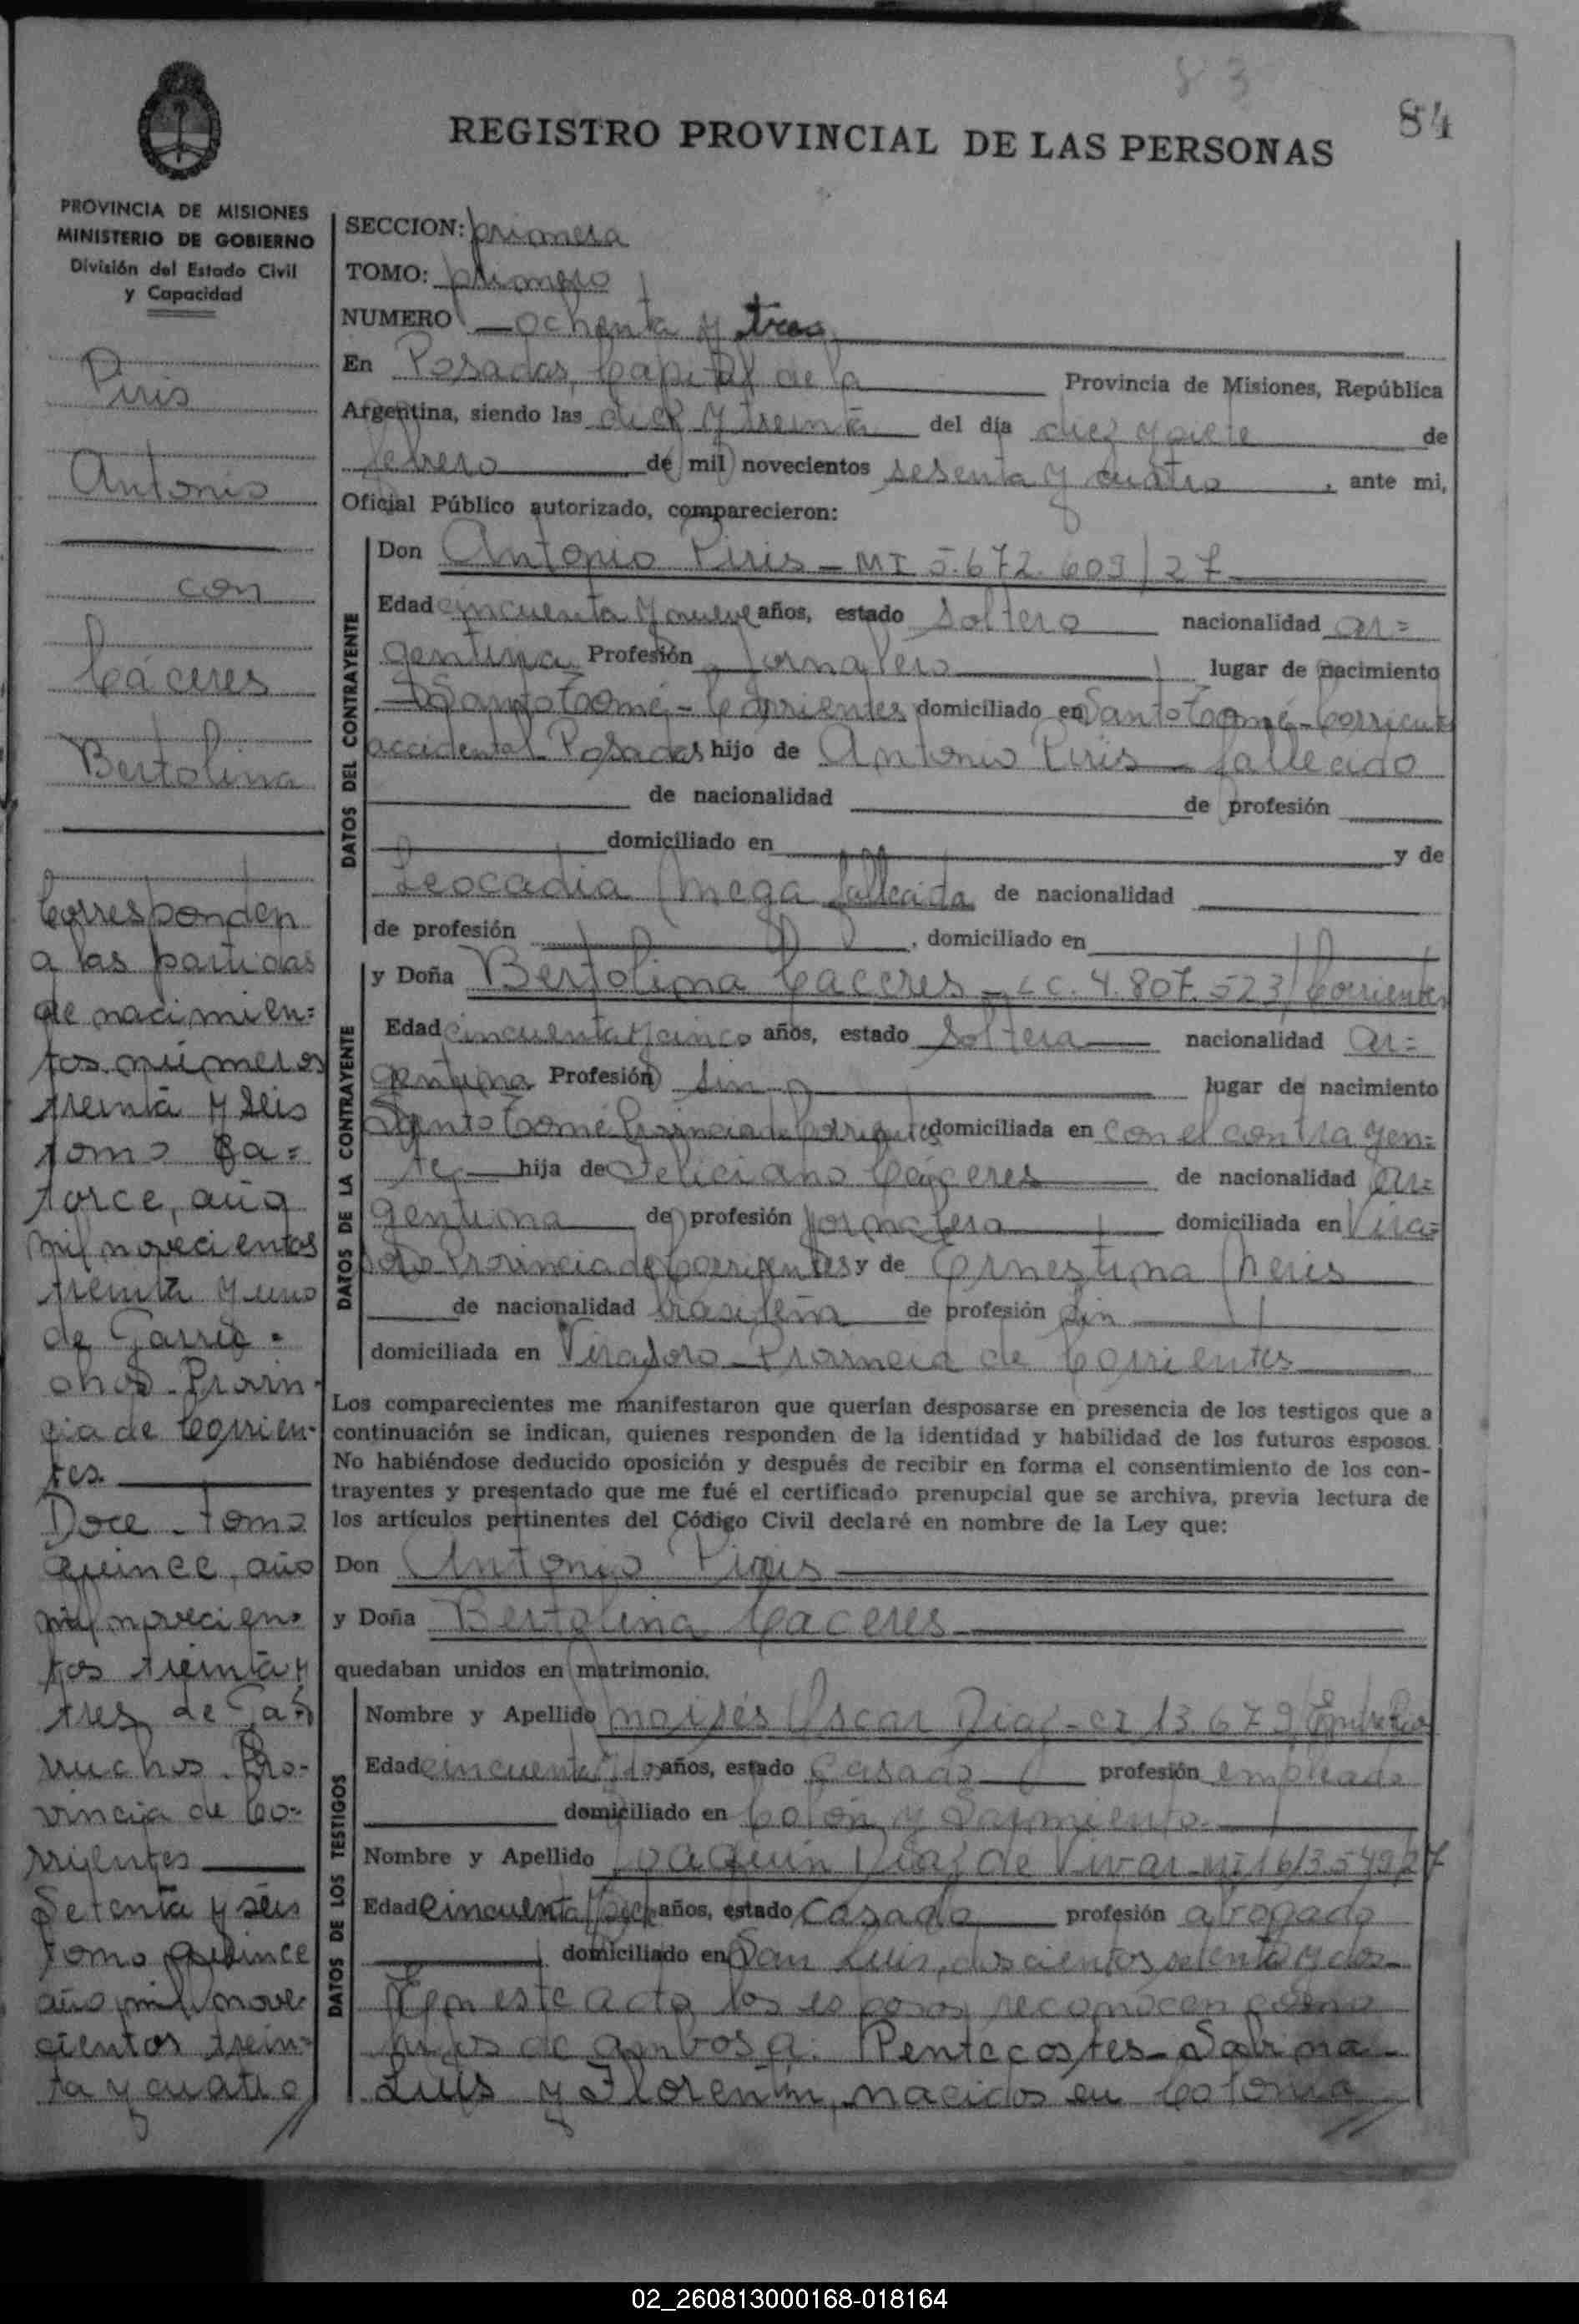 83
84
REGISTRO PROVINCIAL DE LAS PERSONAS
PROVINCIA DE MISIONES
MINISTERIO DE GOBIERNO
División del Estado Civil
y Capacidad
Piris
Antonio
con
Cáceres
Bertolina
Corresponden
a las partidas
de nacimien=
tos números
treinta y seis
tomo Ca=
torce, año
mil novecientos
treinta y uno
de Garru=
chos. Provin-
cia de Corrien-
tes.
Doce - tomo
quince, año
mil novecien=
tos treinta y
tres de Ga=
rruchos. Pro-
vincia de Co=
rrientes
Setenta y seis
tomo quince
año mil nove
cientos trein=
ta y cuatro
SECCION: primera
TOMO: primero
NUMERO ochenta y tres
En Posadas, Capital de la Provincia de Misiones, República
Argentina, siendo las diez y treinta del día diez y siete de
febrero de mil novecientos sesenta y cuatro, ante mi,
Oficial Público autorizado, comparecieron:
DATOS DEL CONTRAYENTE
Don Antonio Piris - MI 5.672.609/27
Edad cincuenta y nueve años, estado Soltero nacionalidad ar=
gentina Profesión Jornalero lugar de nacimiento
Santo Tomé - Corrientes domiciliado en Santo Tomé - Corrientes
accidental Posadas hijo de Antonio Piris - fallecido
de nacionalidad de profesión
domiciliado en y de
Leocadia Meza fallecida de nacionalidad
de profesión , domiciliado en
DATOS DE LA CONTRAYENTE
y Doña Bertolina Caceres - LC. 4.807.523/Corrientes
Edad cincuenta y cinco años, estado Soltera nacionalidad Ar=
gentina Profesión Sin lugar de nacimiento
Santo Tomé Provincia de Corrientes domiciliada en con el contrayen=
te hija de Feliciano Cáceres de nacionalidad Ar=
gentina de profesión jornalero domiciliada en Vira=
soro Provincia de Corrientes y de Ernestina Neris
de nacionalidad brasileña de profesión Sin
domiciliada en Virasoro - Provincia de Corrientes
Los comparecientes me manifestaron que querían desposarse en presencia de los testigos que a
continuación se indican, quienes responden de la identidad y habilidad de los futuros esposos.
No habiéndose deducido oposición y después de recibir en forma el consentimiento de los con-
trayentes y presentado que me fué el certificado prenupcial que se archiva, previa lectura de
los artículos pertinentes del Código Civil declaré en nombre de la Ley que:
Don Antonio Piris
y Doña Bertolina Caceres
quedaban unidos en matrimonio.
DATOS DE LOS TESTIGOS
Nombre y Apellido Moisés Oscar Diaz - CI 13.679/Entre Rios
Edad cincuenta y dos años, estado Casado profesión empleado
domiciliado en Colón y Sarmiento.
Nombre y Apellido Joaquín Diaz de Vivar - MI 1613549/27
Edad Cincuenta años, estado Casado profesión abogado
domiciliado en San Luis, doscientos setenta y dos
En este acto los esposos reconocen como
hijos de ambos a: Pentecostes - Sabina -
Luis y Florentín, nacidos en Colonia
02_260813000168-018164